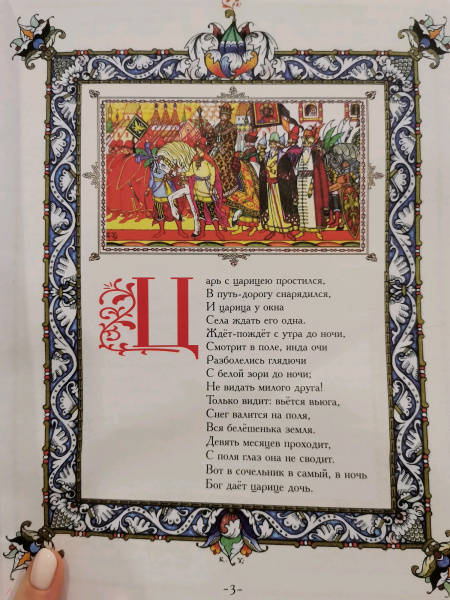 Царь с царицею простился,
В путь-дорогу снарядился,
И царица у окна
Села ждать его одна.
Ждёт-пождёт с утра до ночи,
Смотрит в поле, инда очи
Разболелись глядючи
С белой зори до ночи;
Не видать милого друга!
Только видит: вьётся вьюга,
Снег валится на поля,
Вся белёшенька земля.
Девять месяцев проходит,
С поля глаз она не сводит.
Вот в сочельник в самый, в ночь
Бог даёт царице дочь.
-3-